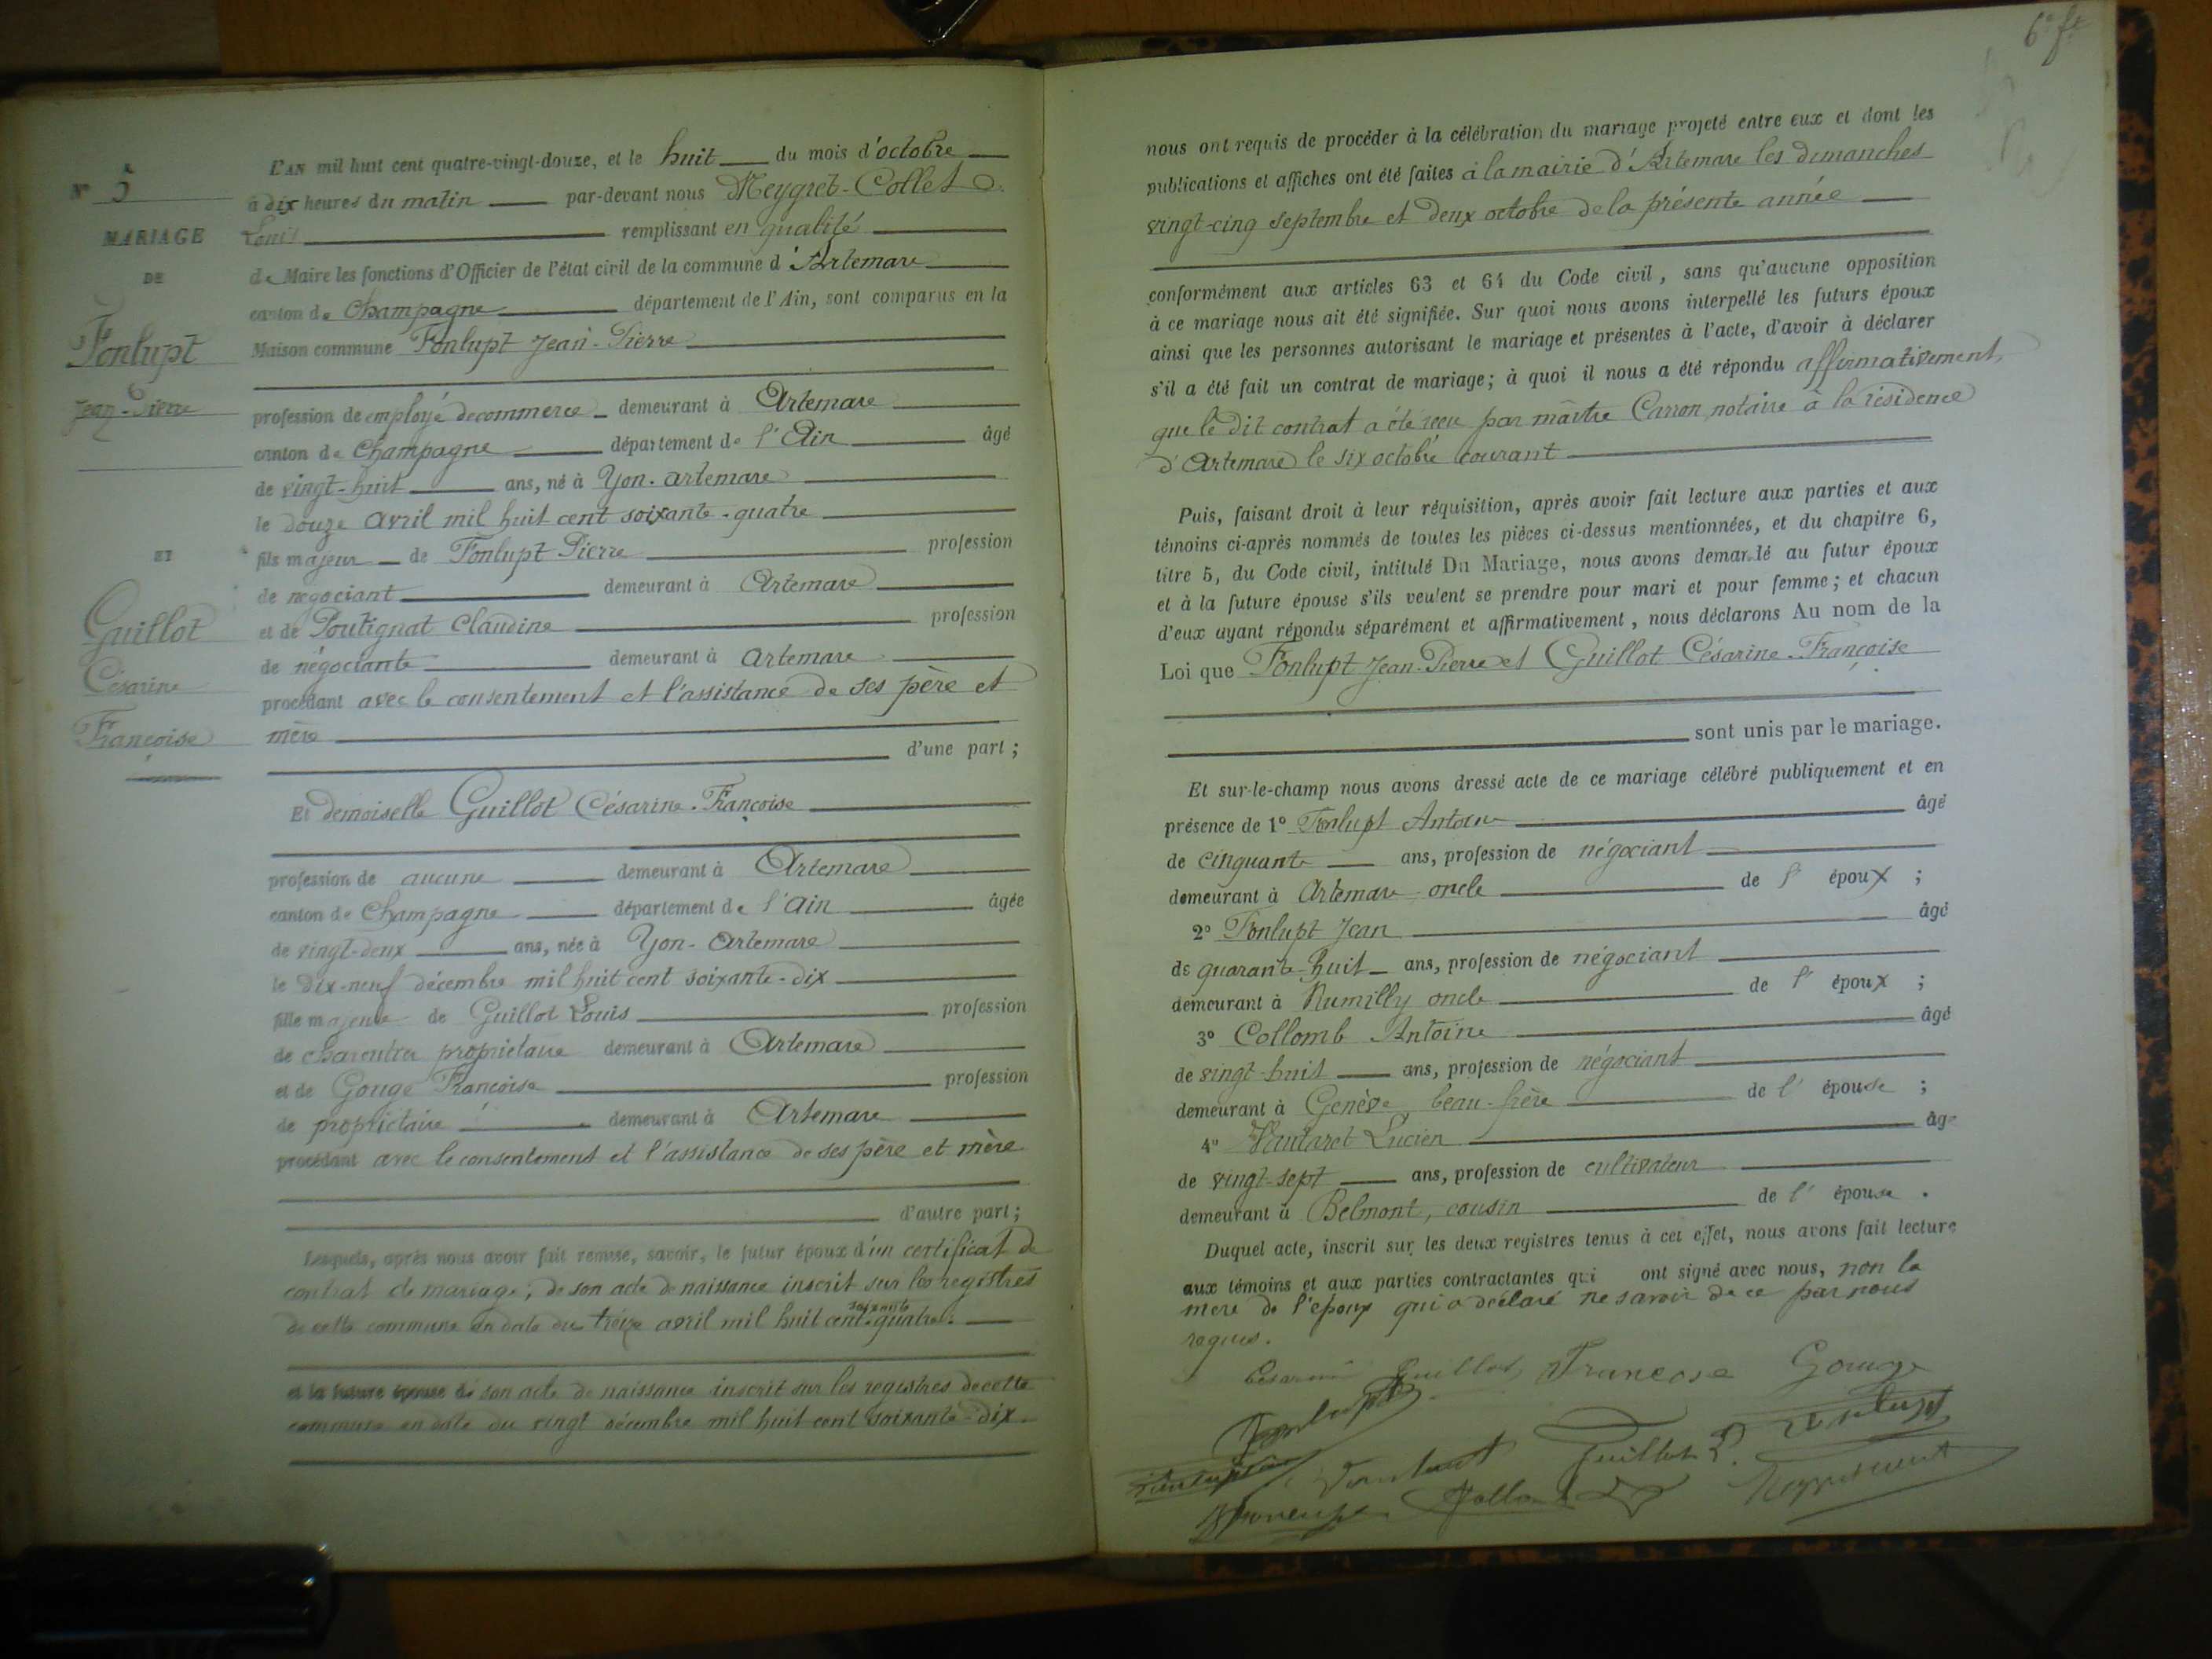 6e ft
N° 5
MARIAGE
DE
Fonlupt
Jean-Pierre
ET
Guillot
Césarine
Françoise
L'AN mil huit cent quatre-vingt-douze, et le huit du mois d'octobre
à dix heures du matin par-devant nous Meygret-Collet
Louis remplissant en qualité
de Maire les fonctions d'Officier de l'état civil de la commune d'Artemare
canton de Champagne département de l'Ain, sont comparus en la
Maison commune Fonlupt Jean-Pierre
profession de employé de commerce demeurant à Artemare
canton de Champagne département de l'Ain âgé
de vingt-huit ans, né à Yon-artemare
le douze avril mil huit cent soixante-quatre
fils majeur de Fonlupt Pierre profession
de négociant demeurant à Artemare
et de Poutignat Claudine profession
de négociante demeurant à artemare
procédant avec le consentement et l'assistance de ses père et
mère
d'une part ;
Et demoiselle Guillot Césarine-Françoise
profession de aucune demeurant à Artemare
canton de Champagne département de l'Ain âgée
de vingt-deux ans, née à Yon-Artemare
le dix-neuf décembre mil huit cent soixante-dix
fille majeure de Guillot Louis profession
de charcutier propriétaire demeurant à Artemare
et de Gouge Françoise profession
de propriétaire demeurant à Artemare
procédant avec le consentement et l'assistance de ses père et mère
d'autre part ;
Lesquels, après nous avoir fait remise, savoir, le futur époux d'un certificat de
contrat de mariage, de son acte de naissance inscrit sur les registres
de cette commune en date du treize avril mil huit cent soixante-quatre.
et la future épouse de son acte de naissance inscrit sur les registres de cette
commune en date du vingt décembre mil huit cent soixante-dix.
nous ont requis de procéder à la célébration du mariage projeté entre eux et dont les
publications et affiches ont été faites à la mairie d'Artemare les dimanches
vingt-cinq septembre et deux octobre de la présente année
conformément aux articles 63 et 64 du Code civil, sans qu'aucune opposition
à ce mariage nous ait été signifiée. Sur quoi nous avons interpellé les futurs époux
ainsi que les personnes autorisant le mariage et présentes à l'acte, d'avoir à déclarer
s'il a été fait un contrat de mariage ; à quoi il nous a été répondu affirmativement,
que le dit contrat a été reçu par maître Carron notaire à la résidence
d'Artemare le six octobre courant
Puis, faisant droit à leur réquisition, après avoir fait lecture aux parties et aux
témoins ci-après nommés de toutes les pièces ci-dessus mentionnées, et du chapitre 6,
titre 5, du Code civil, intitulé Du Mariage, nous avons demandé au futur époux
et à la future épouse s'ils veulent se prendre pour mari et pour femme ; et chacun
d'eux ayant répondu séparément et affirmativement, nous déclarons Au nom de la
Loi que Fonlupt Jean-Pierre et Guillot Césarine-Françoise
sont unis par le mariage.
Et sur-le-champ nous avons dressé acte de ce mariage célébré publiquement et en
présence de 1° Fonlupt Antoine âgé
de cinquante ans, profession de négociant
demeurant à Artemare oncle de l'époux ;
2° Fonlupt Jean âgé
de quarante-huit ans, profession de négociant
demeurant à Rumilly oncle de l'époux ;
3° Collomb Antoine âgé
de vingt-huit ans, profession de négociant
demeurant à Genève beau-frère de l'épouse ;
4° Vautaret Lucien âgé
de vingt-sept ans, profession de cultivateur
demeurant à Belmont, cousin de l'épouse.
Duquel acte, inscrit sur les deux registres tenus à cet effet, nous avons fait lecture
aux témoins et aux parties contractantes qui ont signé avec nous, non la
mère de l'époux qui a déclaré ne savoir de ce par nous
requis.
Césarine Guillot Françoise Gouge
Fonlupt
Fonlupt
Guillot L.